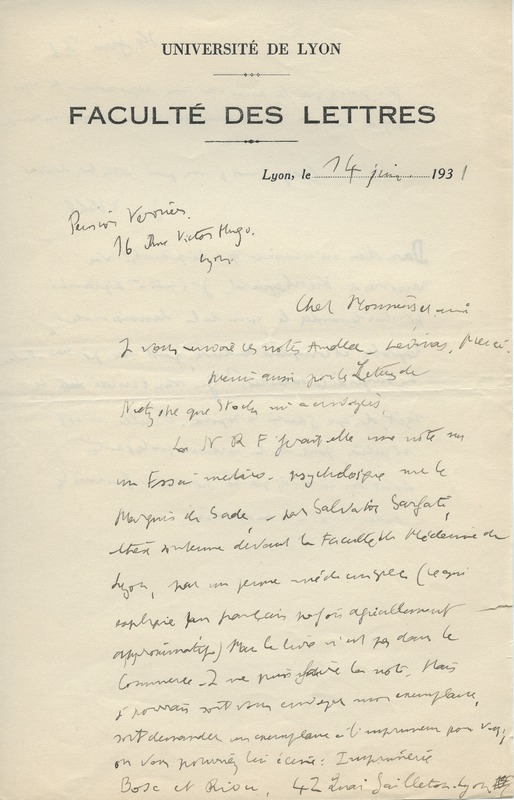 UNIVERSITÉ DE LYON
FACULTÉ DES LETTRES
Lyon, le 14 juin 1931
Pension Verrier.
16 Rue Victor Hugo.
Lyon
Cher Monsieur et ami
Je vous envoie ces notes Andler - Levinas, Merci
merci aussi pour les Lettres de
Nietzsche que Stock m'a envoyées.
La N R F ferait elle une note sur
un Essai médico-psychologique sur le
Marquis de Sade, - par Salvator Sarfati,
thèse soutenue devant la Faculté de Médecine de
Lyon, par un jeune médecin grec (ce qui
explique un français parfois agréablement
approximatif) Mais le livre n'est pas dans le
Commerce - Je ne puis faire la note. Mais
je pourrais soit vous envoyer mon exemplaire,
soit demander un exemplaire à l'imprimeur pour vous,
ou vous pourriez lui écrire : Imprimerie
Bosc et Riou, 42 Quai Gailleton. Lyon